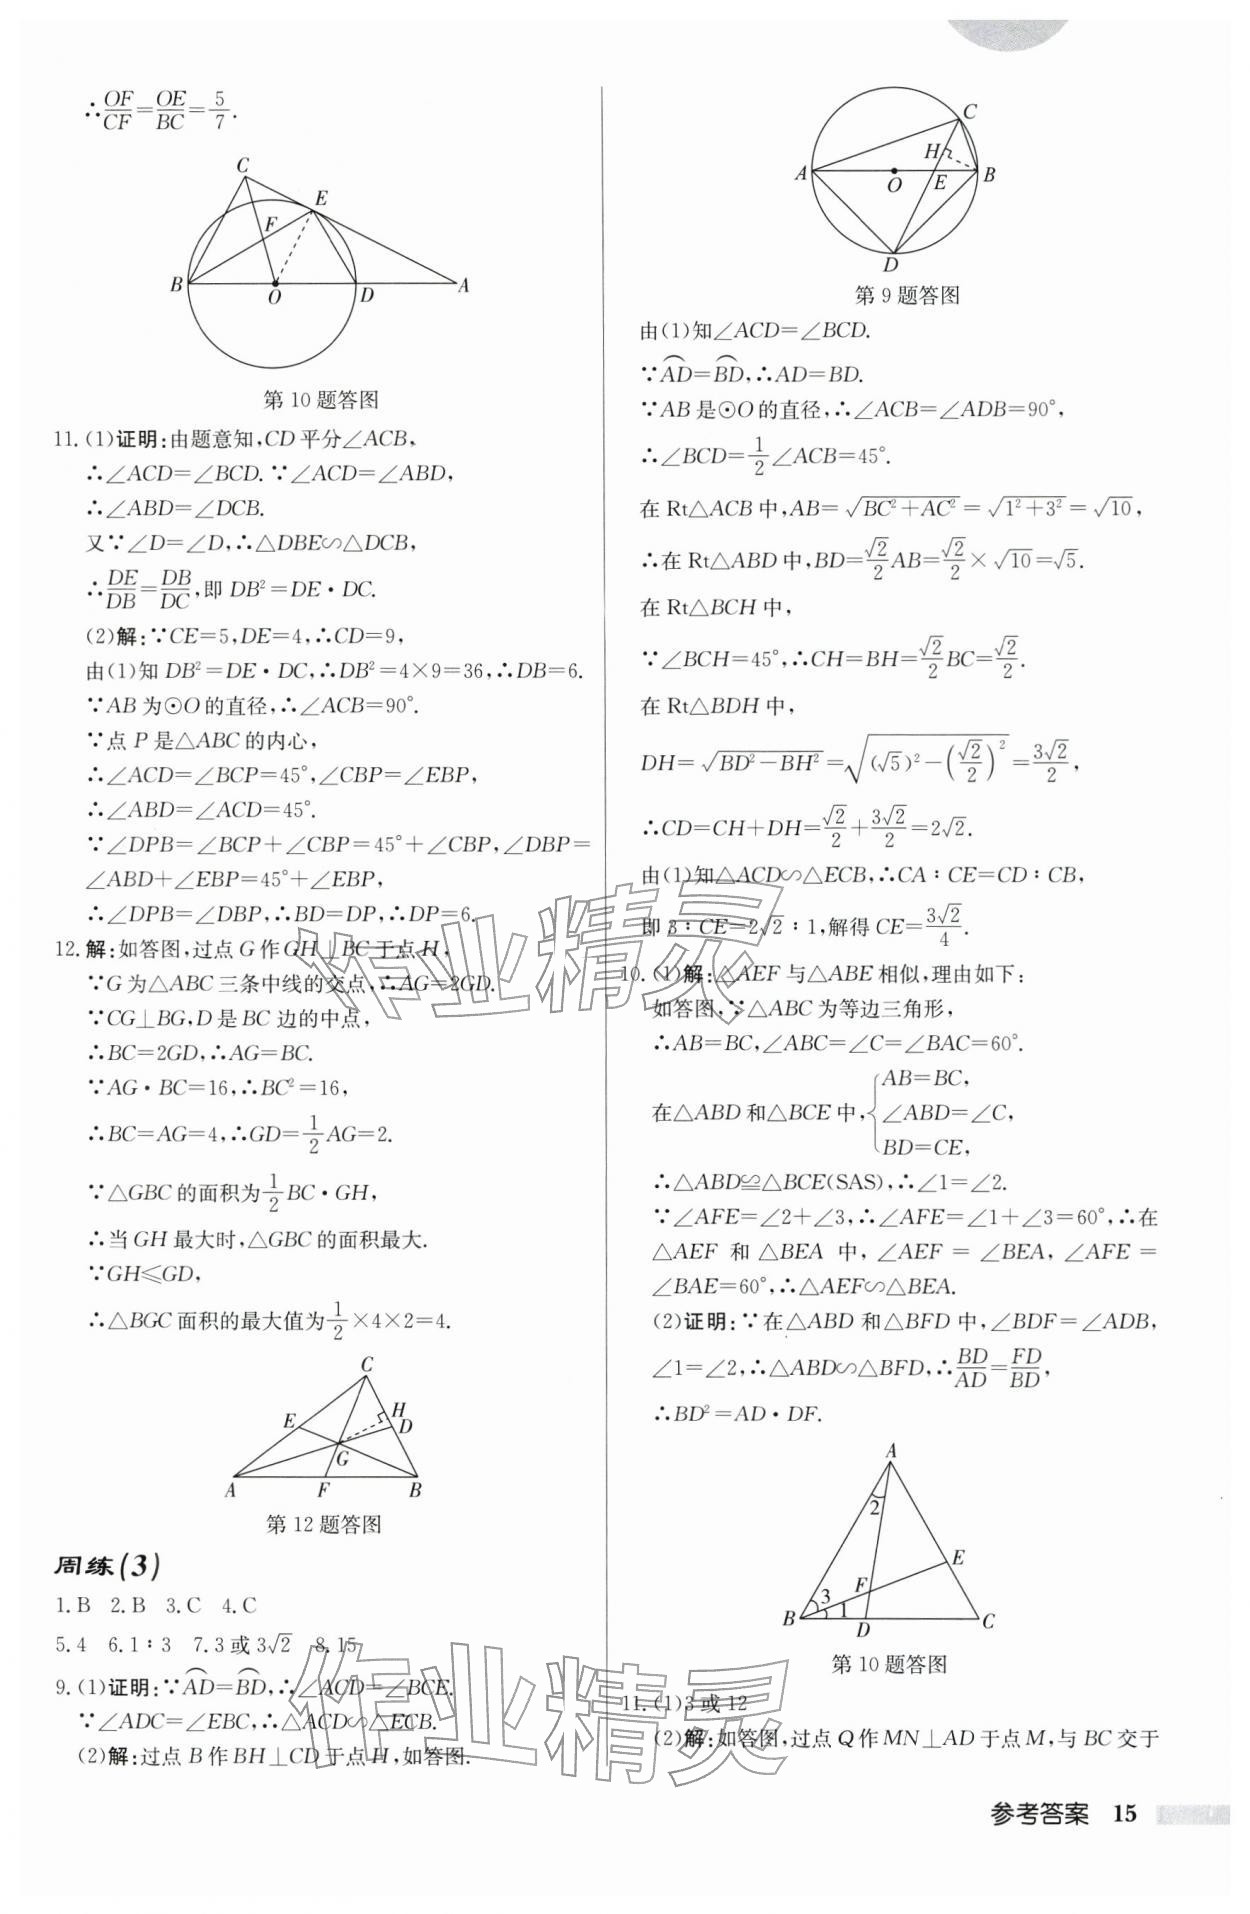 ∴OF/CF=OE/BC=5/7.
C
E
F
B
O
D
A
第10题答图
11.(1)证明:由题意知,CD平分∠ACB,
∴∠ACD=∠BCD.∵∠ACD=∠ABD,
∴∠ABD=∠DCB.
又∵∠D=∠D,∴△DBE∽△DCB,
∴DE/DB=DB/DC,即DB²=DE·DC.
(2)解:∵CE=5,DE=4,∴CD=9,
由(1)知DB²=DE·DC,∴DB²=4×9=36,∴DB=6.
∵AB为⊙O的直径,∴∠ACB=90°.
∵点P是△ABC的内心,
∴∠ACD=∠BCP=45°,∠CBP=∠EBP,
∴∠ABD=∠ACD=45°.
∵∠DPB=∠BCP+∠CBP=45°+∠CBP,∠DBP=
∠ABD+∠EBP=45°+∠EBP,
∴∠DPB=∠DBP,∴BD=DP,∴DP=6.
12.解:如答图,过点G作GH⊥BC于点H,
∵G为△ABC三条中线的交点,∴AG=2GD.
∵CG⊥BG,D是BC边的中点,
∴BC=2GD,∴AG=BC.
∵AG·BC=16,∴BC²=16,
∴BC=AG=4,∴GD=1/2AG=2.
∵△GBC的面积为1/2BC·GH,
∴当GH最大时,△GBC的面积最大.
∵GH≤GD,
∴△BGC面积的最大值为1/2×4×2=4.
C
E
H
D
G
A
F
B
第12题答图
周练(3)
1.B 2.B 3.C 4.C
5.4 6.1∶3 7.3或3√2 8.15
9.(1)证明:∵⌒AD=⌒BD,∴∠ACD=∠BCE.
∵∠ADC=∠EBC,∴△ACD∽△ECB.
(2)解:过点B作BH⊥CD于点H,如答图.
C
H
A
O
E
B
D
第9题答图
由(1)知∠ACD=∠BCD.
∵⌒AD=⌒BD,∴AD=BD.
∵AB是⊙O的直径,∴∠ACB=∠ADB=90°,
∴∠BCD=1/2∠ACB=45°.
在Rt△ACB中,AB=√(BC²+AC²)=√(1²+3²)=√10,
∴在Rt△ABD中,BD=√2/2AB=√2/2×√10=√5.
在Rt△BCH中,
∵∠BCH=45°,∴CH=BH=√2/2BC=√2/2.
在Rt△BDH中,
DH=√(BD²-BH²)=√((√5)²-(√2/2)²)=3√2/2,
∴CD=CH+DH=√2/2+3√2/2=2√2.
由(1)知△ACD∽△ECB,∴CA∶CE=CD∶CB,
即3∶CE=2√2∶1,解得CE=3√2/4.
10.(1)解:△AEF与△ABE相似,理由如下:
如答图,∵△ABC为等边三角形,
∴AB=BC,∠ABC=∠C=∠BAC=60°.
在△ABD和△BCE中,{AB=BC,
∠ABD=∠C,
BD=CE,
∴△ABD≌△BCE(SAS),∴∠1=∠2.
∵∠AFE=∠2+∠3,∴∠AFE=∠1+∠3=60°,∴在
△AEF和△BEA中,∠AEF=∠BEA,∠AFE=
∠BAE=60°,∴△AEF∽△BEA.
(2)证明:∵在△ABD和△BFD中,∠BDF=∠ADB,
∠1=∠2,∴△ABD∽△BFD,∴BD/AD=FD/BD,
∴BD²=AD·DF.
A
2
E
F
3
1
B
D
C
第10题答图
11.(1)3或12
(2)解:如答图,过点Q作MN⊥AD于点M,与BC交于
参考答案 15
作业精灵
作业精灵